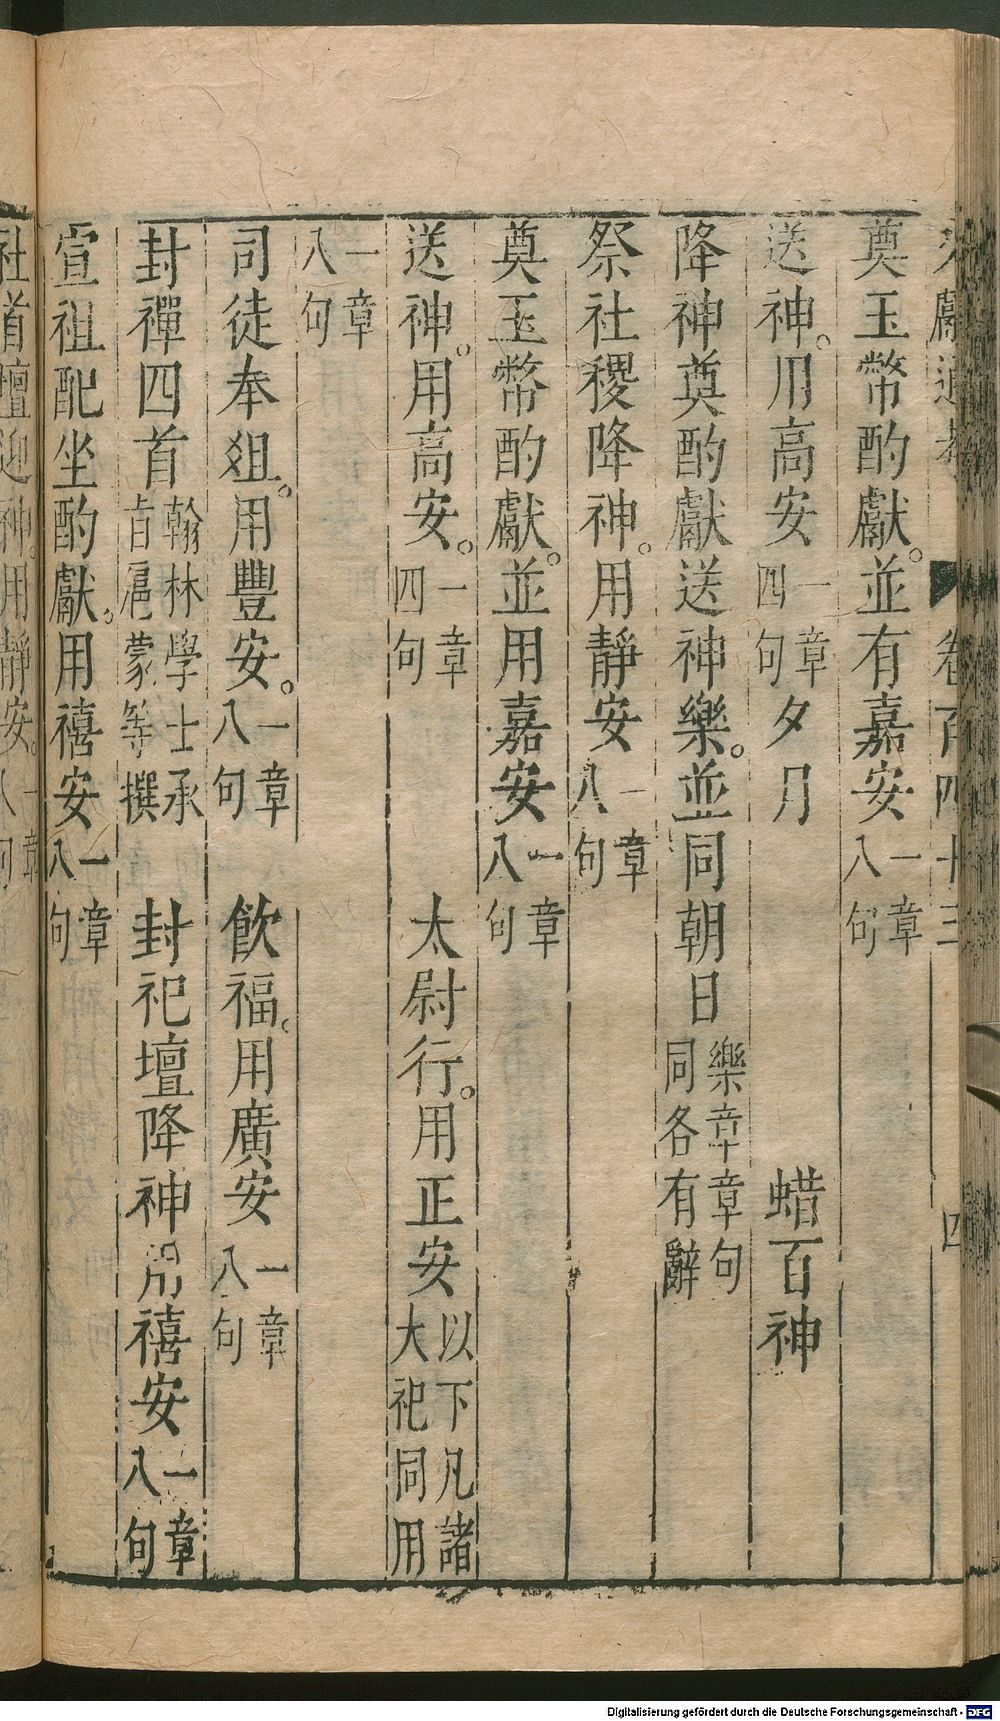 文獻通考 卷百四十三 四
奠玉幣酌獻。並有嘉安一章八句
送神。用高安一章四句夕月 蜡百神
降神奠酌獻送神樂。並同朝日樂章章句同各有辭
祭社稷降神。用靜安一章八句
奠玉幣酌獻。並用嘉安一章八句
送神。用高安。一章四句 太尉行。用正安以下凡諸大祀同用
一章八句
司徒奉俎。用豐安。一章八句 飲福。用廣安一章八句
封禪四首翰林學士承旨扈蒙等撰 封祀壇降神用禧安一章八句
宣祖配坐酌獻。用禧安一章八句
社首壇迎神。用靜安。一章八句
Digitalisierung gefördert durch die Deutsche Forschungsgemeinschaft - DFG